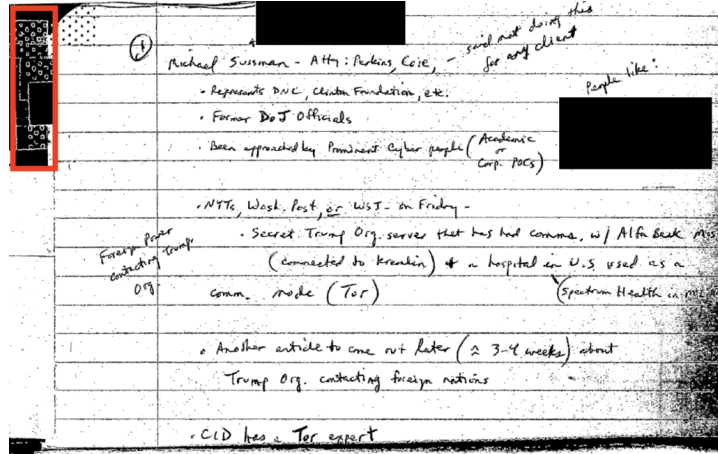 ① Michael Sussman - Atty: Perkins, Coie, - said not doing this
for any client
People like:
• Represents DNC, Clinton Foundation, etc.
• Former DoJ Officials
• Been approached by Prominent Cyber people (Academic
or
Corp. POCs)
• NYTs, Wash. Post, or WSJ - on Friday -
• Secret Trump Org. server that has had comms. w/ Alfa Bank
(connected to Kremlin) + a hospital in U.S. used as a
comm. node (Tor)
(Spectrum Health in
Foreign Power
contacting Trump
Org
• Another article to come out later (≈ 3-4 weeks) about
Trump Org. contacting foreign nations
• CID has a Tor expert